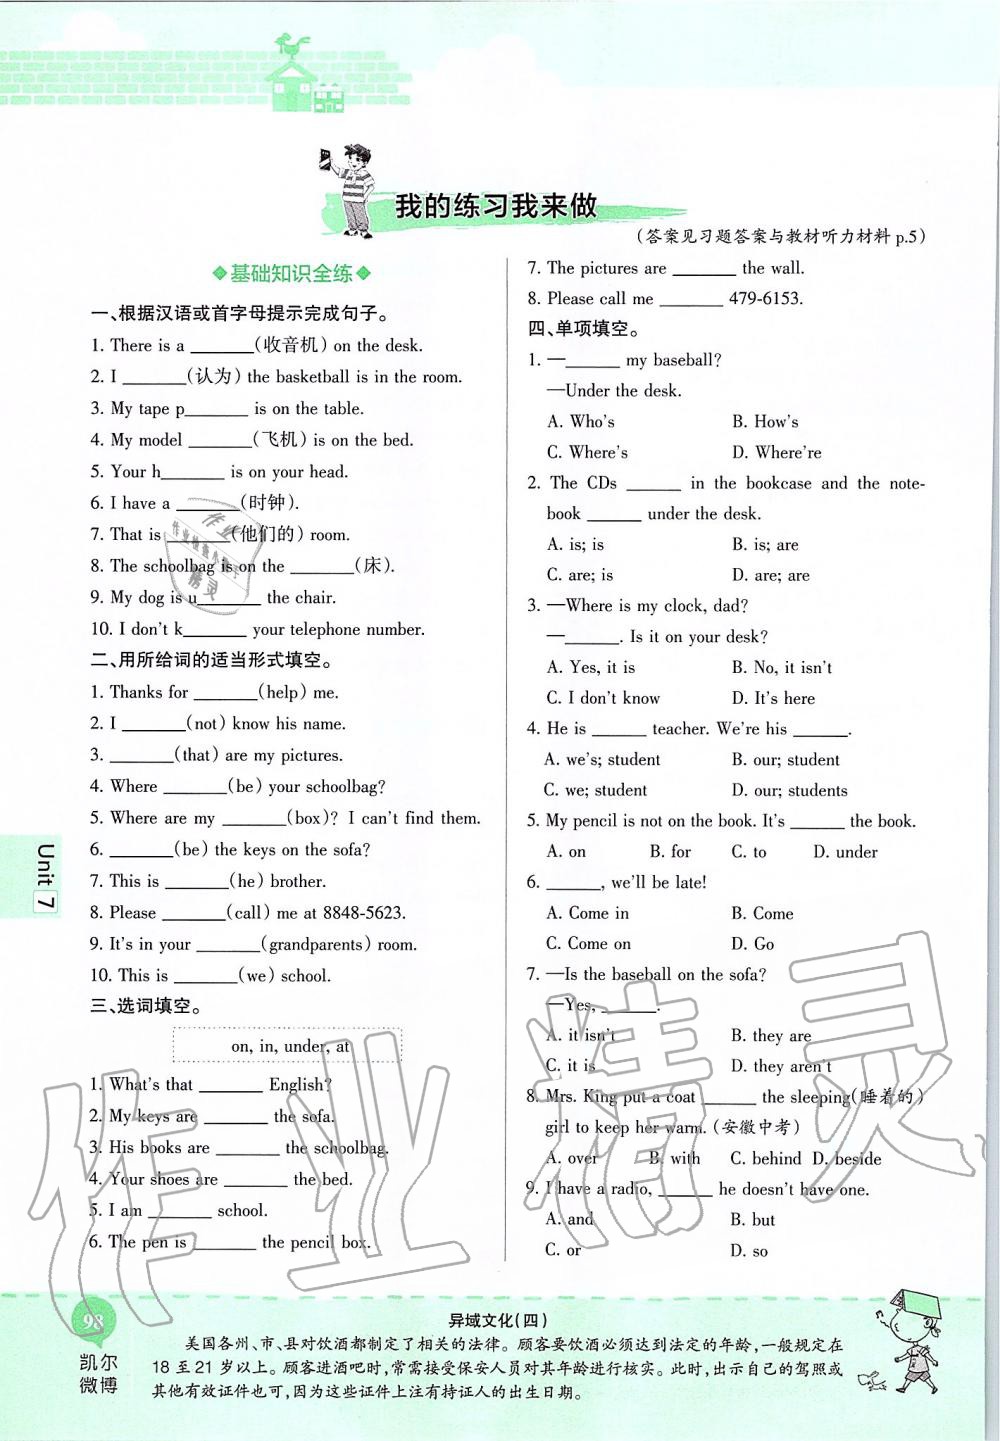 我的练习我来做
(答案见习题答案与教材听力材料 p.5)
基础知识全练
一、根据汉语或首字母提示完成句子。
1. There is a ______(收音机) on the desk.
2. I ______(认为) the basketball is in the room.
3. My tape p______ is on the table.
4. My model ______(飞机) is on the bed.
5. Your h______ is on your head.
6. I have a ______(时钟).
7. That is ______(他们的) room.
8. The schoolbag is on the ______(床).
9. My dog is u______ the chair.
10. I don't k______ your telephone number.
二、用所给词的适当形式填空。
1. Thanks for ______(help) me.
2. I ______(not) know his name.
3. ______(that) are my pictures.
4. Where ______(be) your schoolbag?
5. Where are my ______(box)? I can't find them.
6. ______(be) the keys on the sofa?
7. This is ______(he) brother.
8. Please ______(call) me at 8848-5623.
9. It's in your ______(grandparents) room.
10. This is ______(we) school.
三、选词填空。
on, in, under, at
1. What's that ______ English?
2. My keys are ______ the sofa.
3. His books are ______ the schoolbag.
4. Your shoes are ______ the bed.
5. I am ______ school.
6. The pen is ______ the pencil box.
7. The pictures are ______ the wall.
8. Please call me ______ 479-6153.
四、单项填空。
1. —______ my baseball?
—Under the desk.
A. Who's B. How's
C. Where's D. Where're
2. The CDs ______ in the bookcase and the note-
book ______ under the desk.
A. is; is B. is; are
C. are; is D. are; are
3. —Where is my clock, dad?
—______. Is it on your desk?
A. Yes, it is B. No, it isn't
C. I don't know D. It's here
4. He is ______ teacher. We're his ______.
A. we's; student B. our; student
C. we; student D. our; students
5. My pencil is not on the book. It's ______ the book.
A. on B. for C. to D. under
6. ______, we'll be late!
A. Come in B. Come
C. Come on D. Go
7. —Is the baseball on the sofa?
—Yes, ______.
A. it isn't B. they are
C. it is D. they aren't
8. Mrs. King put a coat ______ the sleeping(睡着的)
girl to keep her warm. (安徽中考)
A. over B. with C. behind D. beside
9. I have a radio, ______ he doesn't have one.
A. and B. but
C. or D. so
Unit 7
98
凯尔
微博
异域文化(四)
美国各州、市、县对饮酒都制定了相关的法律。顾客要饮酒必须达到法定的年龄,一般规定在
18 至 21 岁以上。顾客进酒吧时,常需接受保安人员对其年龄进行核实。此时,出示自己的驾照或
其他有效证件也可,因为这些证件上注有持证人的出生日期。
作业精灵